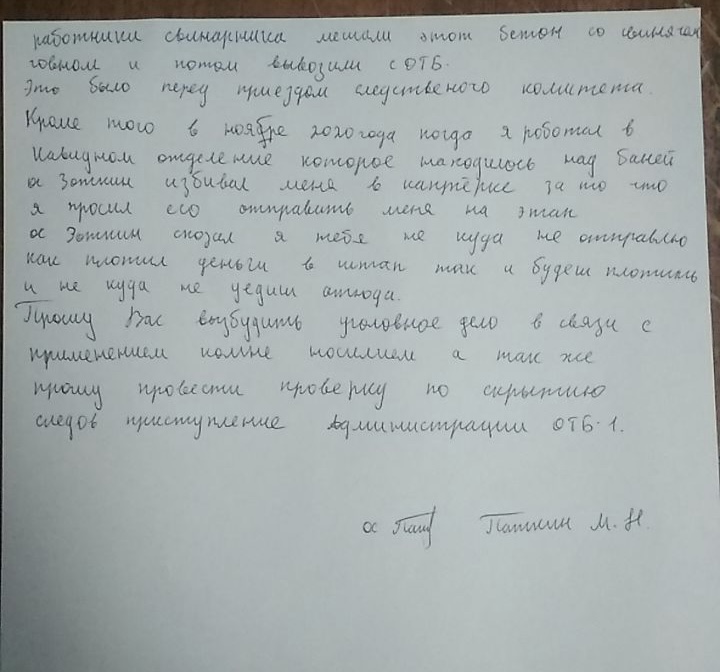 работники свинарника мешали этот бетон со свинячим
говном и потом вывозили с ОТБ.
Это было перед приездом следственого комитета.
Кроме того в ноябре 2020 года когда я роботал в
Кавидном отделение которое находилось над баней
ос Зоткин избивал меня в каптёрке за то что
я просил его отправить меня на этап
ос Зоткин сказал я тебя не куда не отправлю
как плотил деньги в штап так и будеш плотить
и не куда не уедиш отюда.
Прошу Вас възбудить уголовное дело в связи с
применением комне носилием а так же
прошу провести проверку по скрытию
следов приступление Администрации ОТБ-1.
ос Паш Пашкин М.Н.